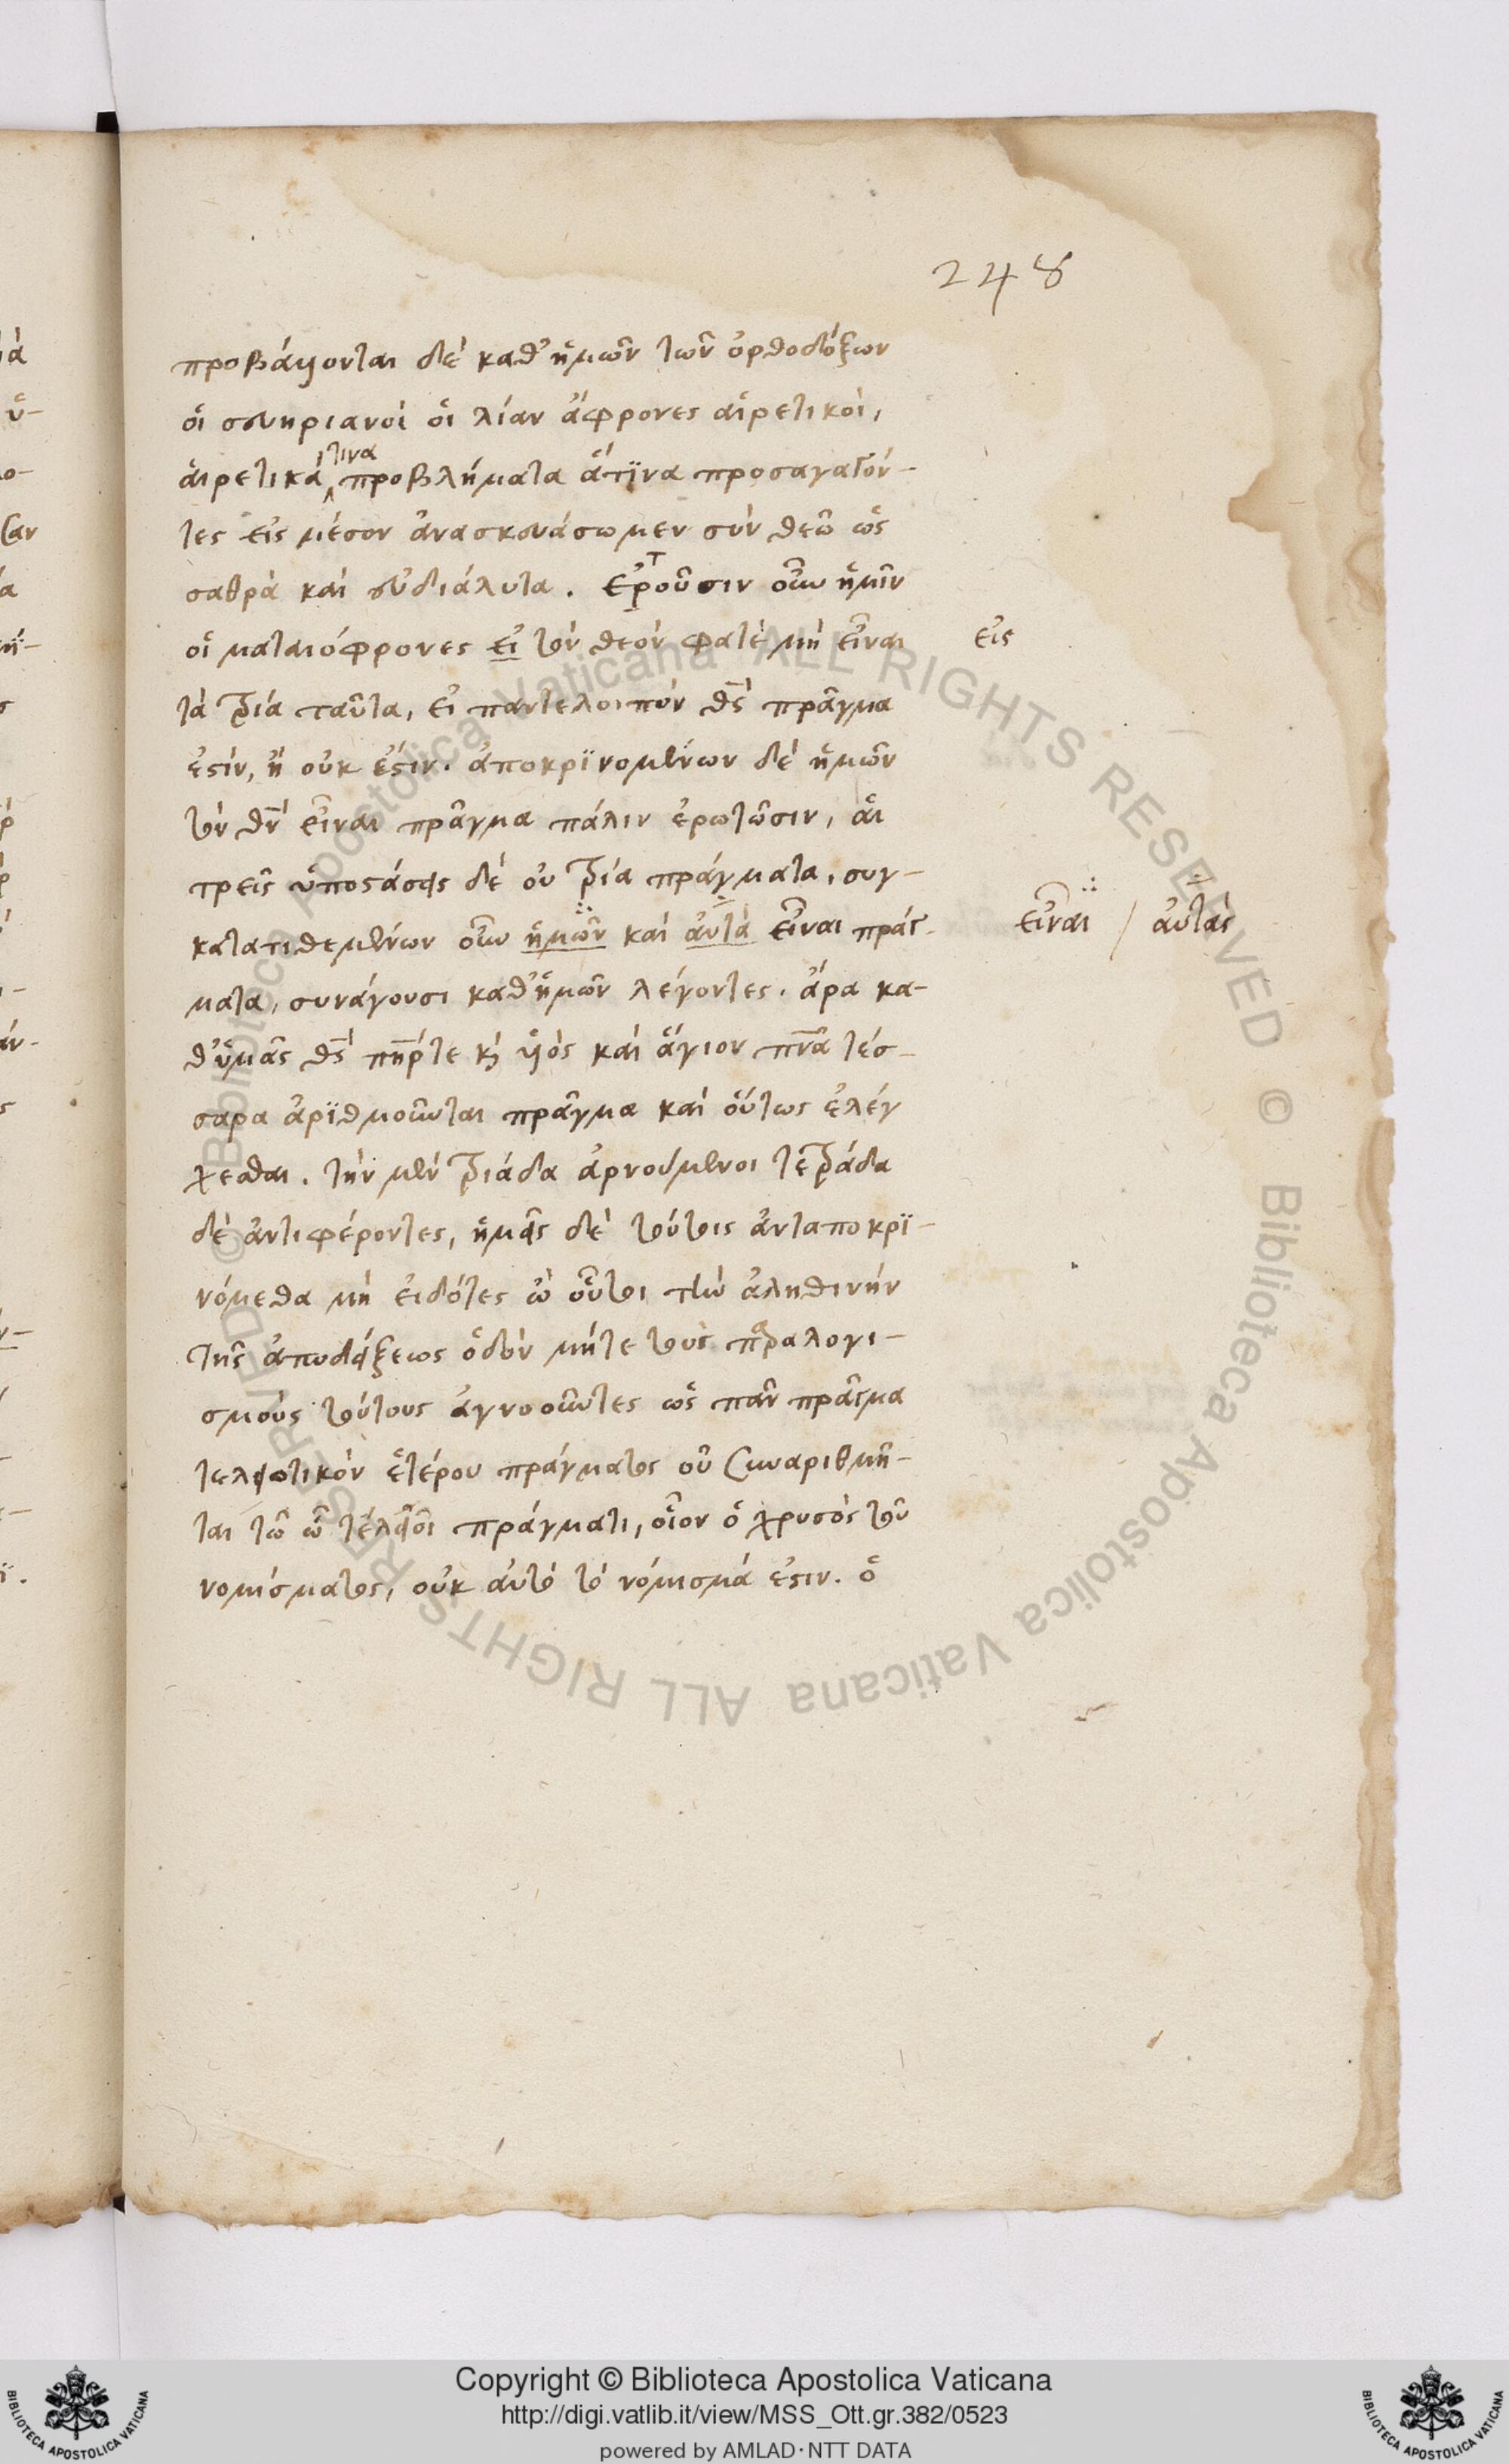 248
προβάλλονται δὲ καθ' ἡμῶν τῶν ὀρθοδόξων
οἱ σευηριανοὶ οἱ λίαν ἄφρονες αἱρετικοὶ,
αἱρετικά τινα προβλήματα ἅτϊνα προσαγαγόν-
τες εἰς μέσον ἀνασκευάσωμεν σὺν θεῶ ὡς
σαθρὰ καὶ εὐδιάλυτα. Ἐροῦσιν οὖν ἡμῖν
οἱ ματαιόφρονες εἰ τὸν θεὸν φατὲ μὴ εἶναι εἰς
τὰ τρία ταῦτα, εἰ παντελοιπὸν θς πρᾶγμα
ἐστὶν, ἢ οὐκ ἔστιν. ἀποκρϊνομένων δὲ ἡμῶν
τὸν θν εἶναι πρᾶγμα πάλιν ἐρωτῶσιν, αἱ
τρεῖς ὑποστάσεις δὲ οὐ τρία πράγματα, συγ-
κατατιθεμένων οὖν ἡμῶν καὶ αὐτὰ εἶναι πράγ- εἶναι / αὐτὰς
ματα, συνάγουσι καθ' ἡμῶν λέγοντες. ἄρα κα-
θ' ὑμᾶς θς πηρ τε κὶ υἱὸς καὶ ἅγιον πνα τέσ-
σαρα ἀρϊθμοῦνται πρᾶγμα καὶ οὕτως ἐλέγ
χεσθαι. τὴν μὲν τριάδα ἀρνούμενοι τετράδα
δὲ ἀντιφέροντες, ἡμεῖς δὲ τούτοις ἀνταποκρϊ-
νόμεθα μὴ εἰδότες ὦ οὗτοι τὴν ἀληθινὴν
τῆς ἀποδείξεως ὁδὸν μήτε τοὺς παραλογι-
σμοὺς τούτους ἀγνοοῦντες ὡς πᾶν πρᾶγμα
τελειωτικὸν ἑτέρου πράγματος οὐ συναριθμῆ-
ται τῶ ὧ τελειοῖ πράγματι, οἷον ὁ χρυσὸς τοῦ
νομίσματος, οὐκ αὐτὸ τὸ νόμισμά ἐστιν. ὁ
Copyright © Biblioteca Apostolica Vaticana
http://digi.vatlib.it/view/MSS_Ott.gr.382/0523
powered by AMLAD·NTT DATA
BIBLIOTECA APOSTOLICA VATICANA
BIBLIOTECA APOSTOLICA VATICANA
© Biblioteca Apostolica Vaticana ALL RIGHTS RESERVED © Biblioteca Apostolica Vaticana ALL RIGHTS RESERVED